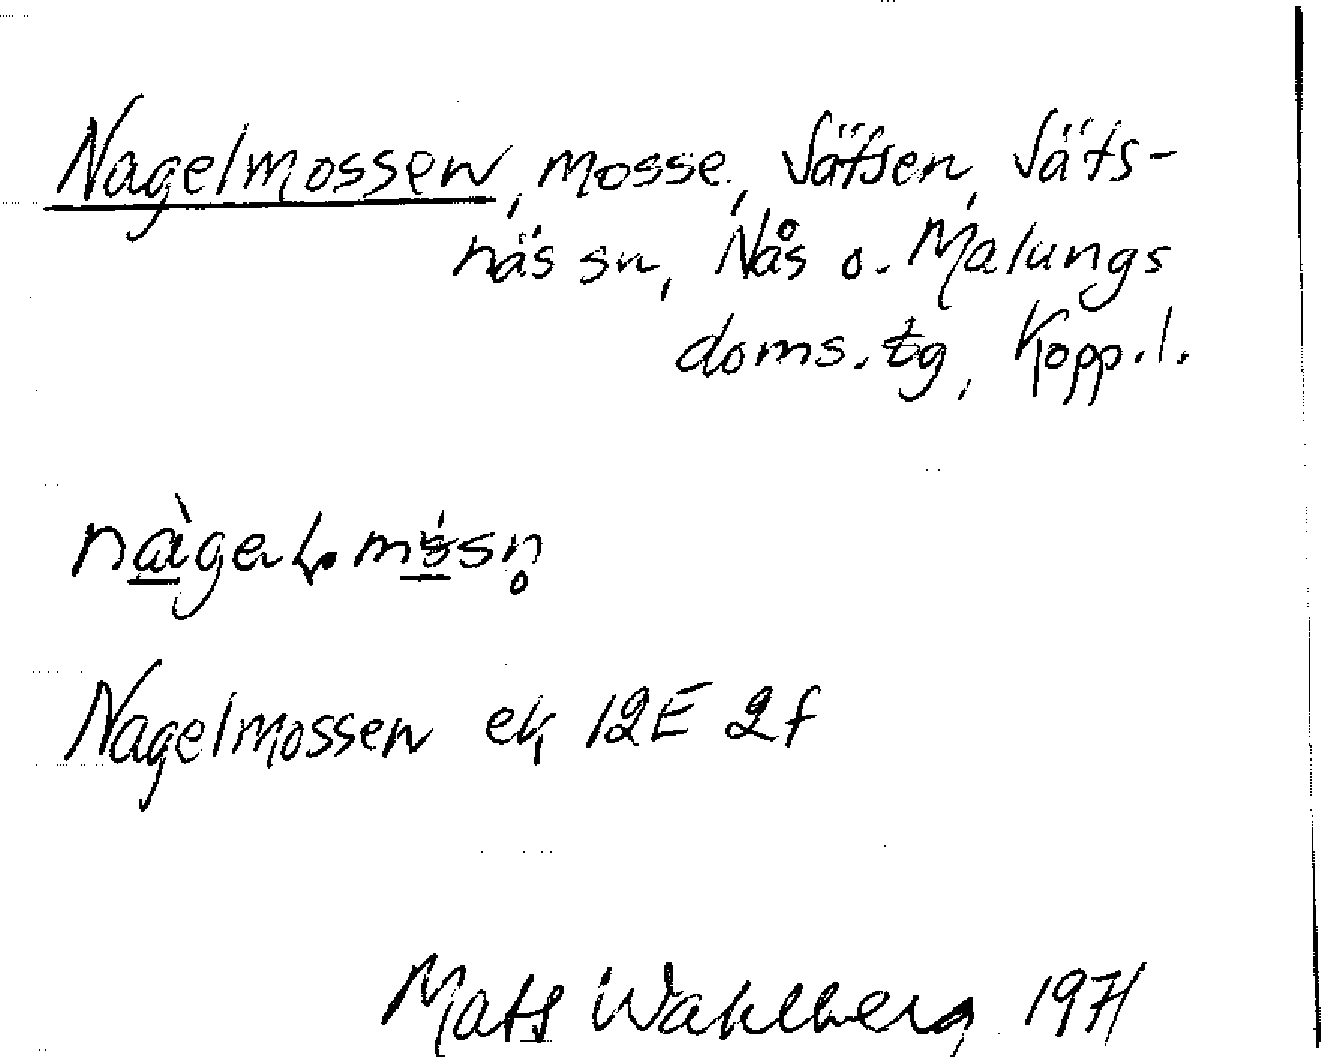 Nagelmossen, mosse, Sätsen, Säts-
näs sn, Nås o. Malungs
doms. tg, Kopp.l.
Nagelmossen ek 12E 2f
Mats Wahlberg 1971